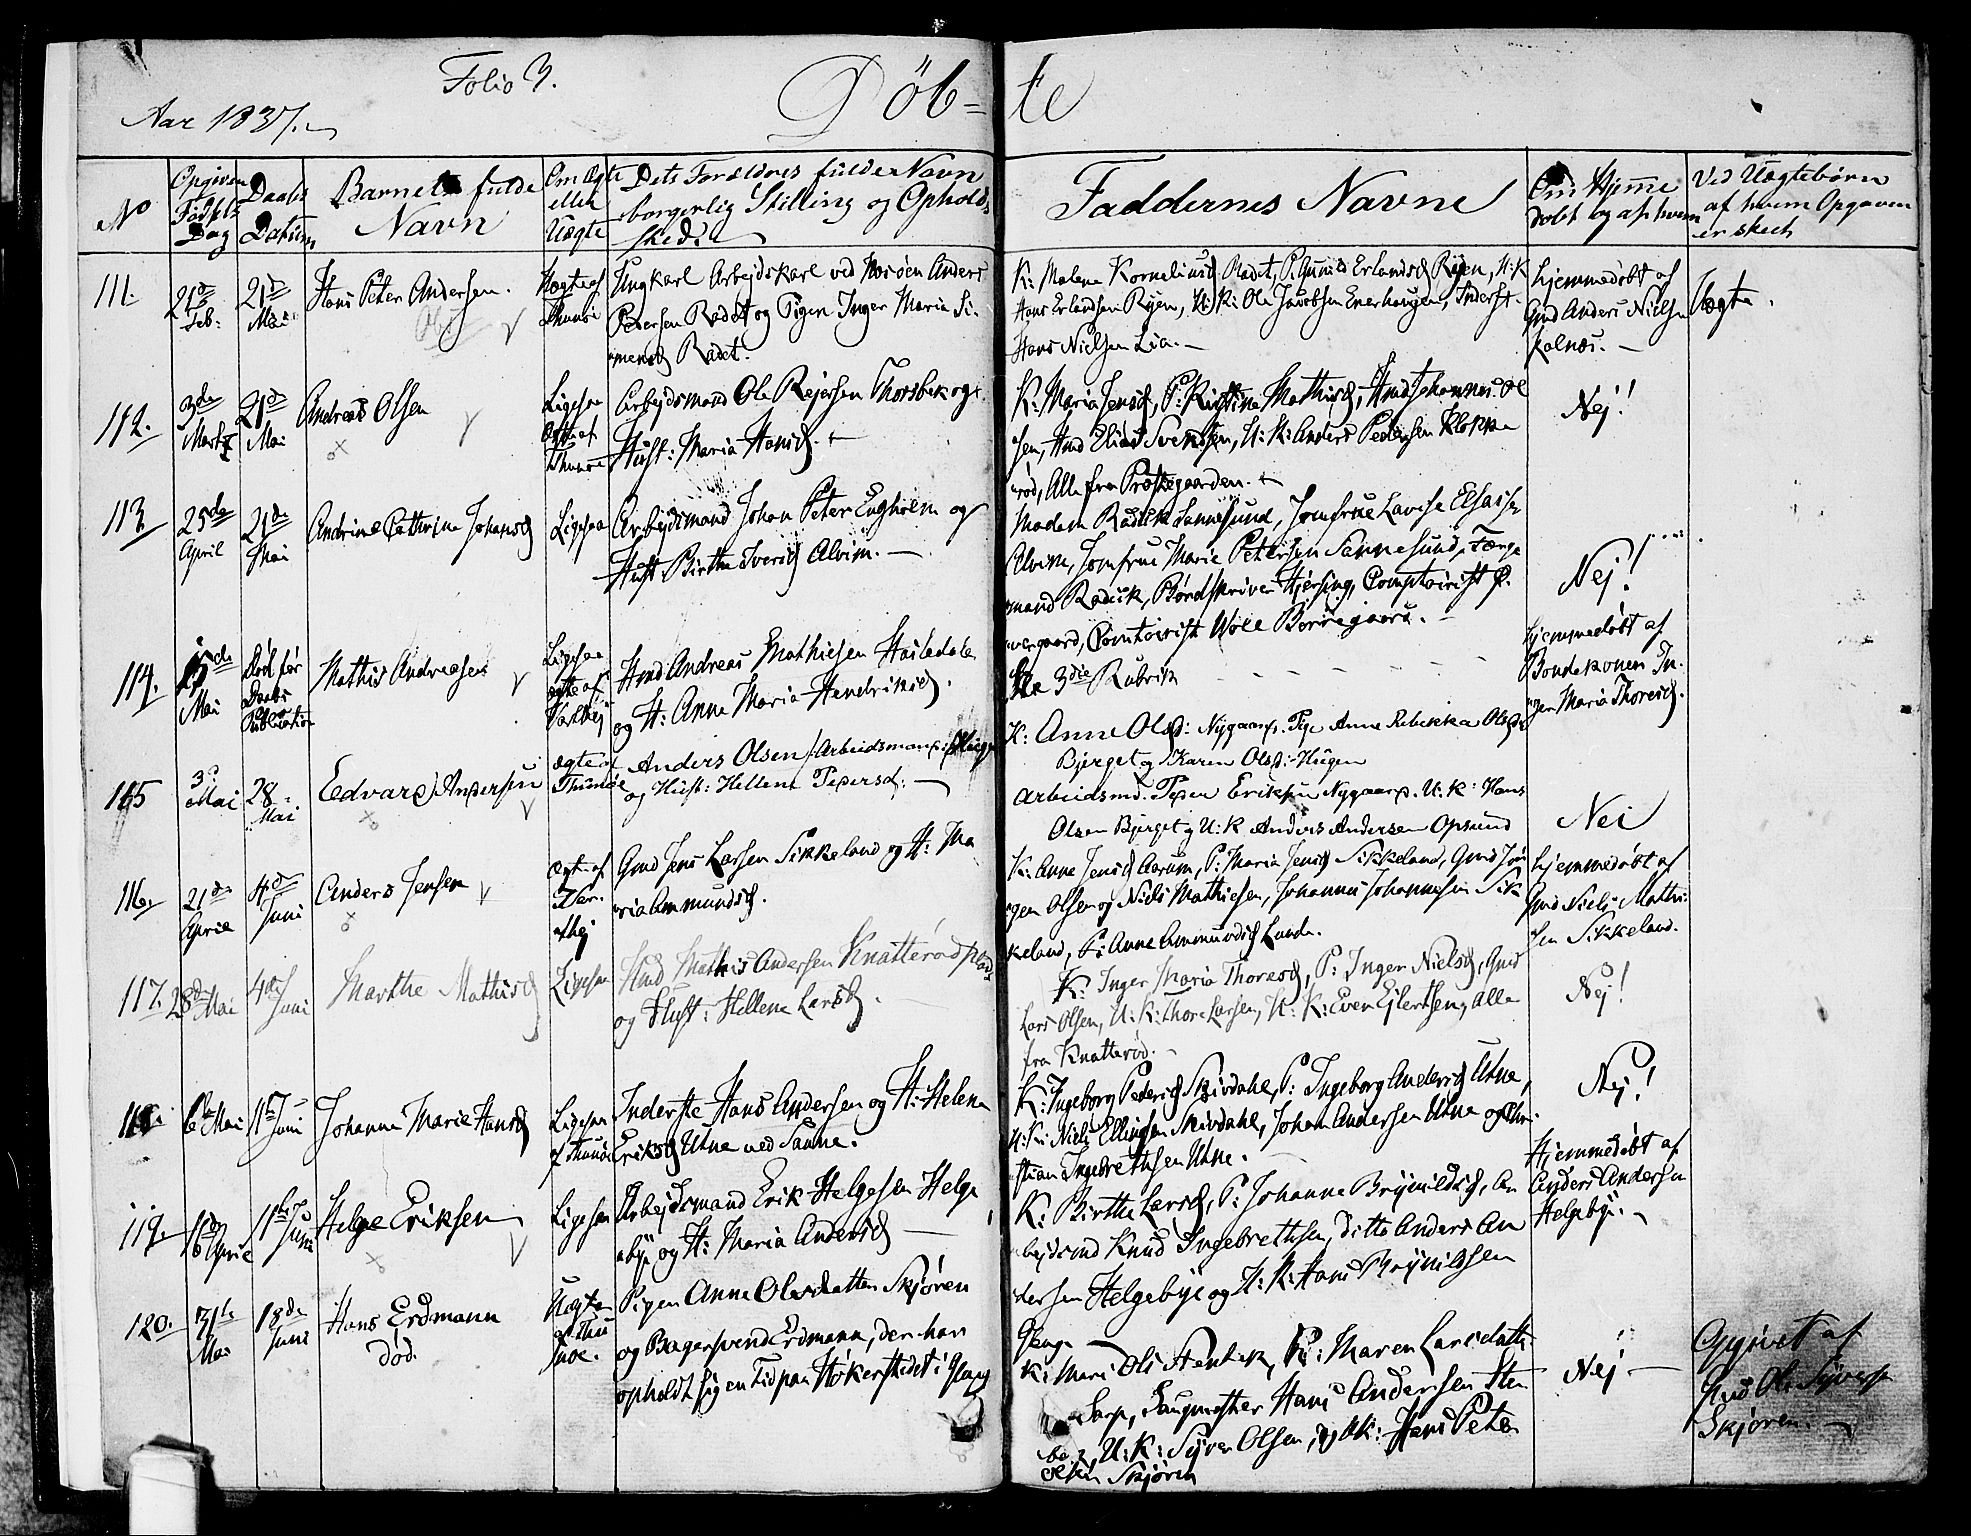 Folio 3.
Döb=
te
Aar 1837.
No
Opgiven Fødsels Dag
Daabs Datum
Barnets fulde Navn
Om Ægte eller Uægte
Dets Forældres fulde Navn
borgerlig Stilling og Opholds
sted.
Faddernes Navne
Om Hjemmedøbt og af hvem
Ved Uægtebørn
af hvem Opgaven
er skeet
111.
21de Feb:
21de Mai
Hans Peter Andersen.
Uægte af Thunø
Ungkarl Arbejdskarl ved Anders
Pedersen Radet og Pigen Inger Maria Si-
mensd Radet.
K: Malene Kornelius Radet, P: Gunild Erlandsd Ryen, U:K
Hans Erlandsen Ryen, U:K: Ole Jacobsen Enerhaugen, Inderst
Hans Nielsen Lia.
hjemmedøbt af
Gmd Anders Nielsen
Kalnæs.
Uægte.
112.
3de Marts
21de Mai
Andreas Olsen
Ligesaa
Ægte af
Thunø
Arbejdsmand Ole Rejersen Thorsbek og
Hust: Maria Hansd.
K: Maria Jensd, P: Kirstine Mathisd, Hmd Johannes Ol
sen, Hmd Elias Svendsen, U:K: Anders Pedersen Klokke
rød, Alle fra Præstegaarden.
Nej!
113.
25de April
21de Mai
Andrine Cathrine Johansd
Ligesaa
Arbejdsmand Johan Peter Engholm og
Hust. Birthe Iversd Alvim.
Madam Radik Sannesund, Jomfrue Lovise Elsasser
Alvim, Jomfrue Marie Petersen Sannesund, Færge
mand Radik, Bordskriver Hjersing, Comptoirist P.
wergaard, Comtoirist Wolle Borregaard.
Nej!
114.
15de Mai
Død før Daabs Publication
Mathis Andreasen
Ligesaa
ægte af
Varthej
Hmd Andreas Mathiesen Hasledalen
og H: Anne Maria Hendriksd.
Se 3die Rubrik
hjemmedøbt af
Bondekonen In-
ger Maria Thoresd.
115
3 Mai
28 Mai
Edvard Andersen
ægte af
Thunøe
Anders Olsen Arbeidsmand
og Hust: Hellene Pedersd.
K: Anne Olsd: Nygaard. Pige Anne Rebekka Olsd
Bjerget og Karen Olsd: Hugen
Arbeidsmd. Peder Eriksen Nygaard. U:K: Hans
Olsen Bjerget og U:K Anders Andersen Opsund
Nei
116.
21de April
4de Juni
Anders Jensen
Ægte af
Var-
thej
Gmd Jens Larsen Sikkeland og H: Ma
ria Ammundsd.
K: Anne Jensd Aarum, P: Maria Jensd Sikkeland, Gmd Jør
gen Olsen og Niels Mathiesen, Johannes Johannesen Sik
keland, P: Anne Ammundsd Lunde.
hjemmedøbt af
Gmd Niels Mathi-
sen Sikkeland.
117.
28de Mai
4de Juni
Marthe Mathisd
Ligesaa
Hmd Mathis Andersen Knatterød plads
og Hust: Hellene Larsd.
K: Inger Maria Thoresd, P: Inger Nielsd, Gmd
Lars Olsen, U:K: Thore Larsen, U:K: Even Ejlertsen, Alle
fra Knatterød.
Nej!
118.
6te Mai
11te Juni
Johanne Marie Hansd
Ligesaa
af Thunø
Inderste Hans Andersen og H: Helene
Eriksd Utne ved Sanne.
K: Ingeborg Pedersd Skivdahl, P: Ingeborg Andersd Utne,
U:K: Niels Ellingsen Skivdahl, Johan Andersen Utne og Chri-
stian Ingebrethsen Utne.
Nej!
119.
16de April
11te Juni
Helge Eriksen
Ligesaa
Arbejdsmand Erik Helgesen Helge
bye og H: Maria Andersd
K: Birthe Larsd, P: Johanne Brynildsd, Ar
bejdsmd Knud Ingebrethsen, ditto Anders An
dersen Helgebye og U:K: Hans Brynildsen
Hjemmedøbt af
Anders Andersen
Helgebye.
120.
31te Mai
18de Juni
Hans Erdmann
død.
Uægte
af Thu
nøe.
Pigen Anne Olesdatter Skjøren
og Bagersvend Erdmann, der har
opholdt sig en Tid paa Høkerstedet i Gleng
K: Mari Ols Henrik, P: Maren Larsdatter
Sarp, Saugmester Hans Andersen Sten
U:K: Syver Olsen, og UK: Hans Peter
Skjøren
Nej
Opgivet af
Gmd Ole Syversen
Skjøren.